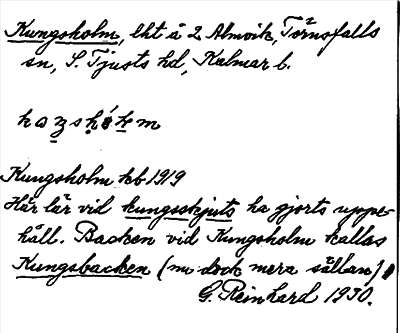 Kungsholm, lht å 2 Almvik, Törnsfalls
sn, S. Tjusts hd, Kalmar l.
Kungsholm kb 1919
Här lär vid kungsskjuts ha gjorts uppe-
håll. Backen vid Kungsholm kallas
Kungsbacken (nu dock mera sällan),
G. Reinhard 1930.